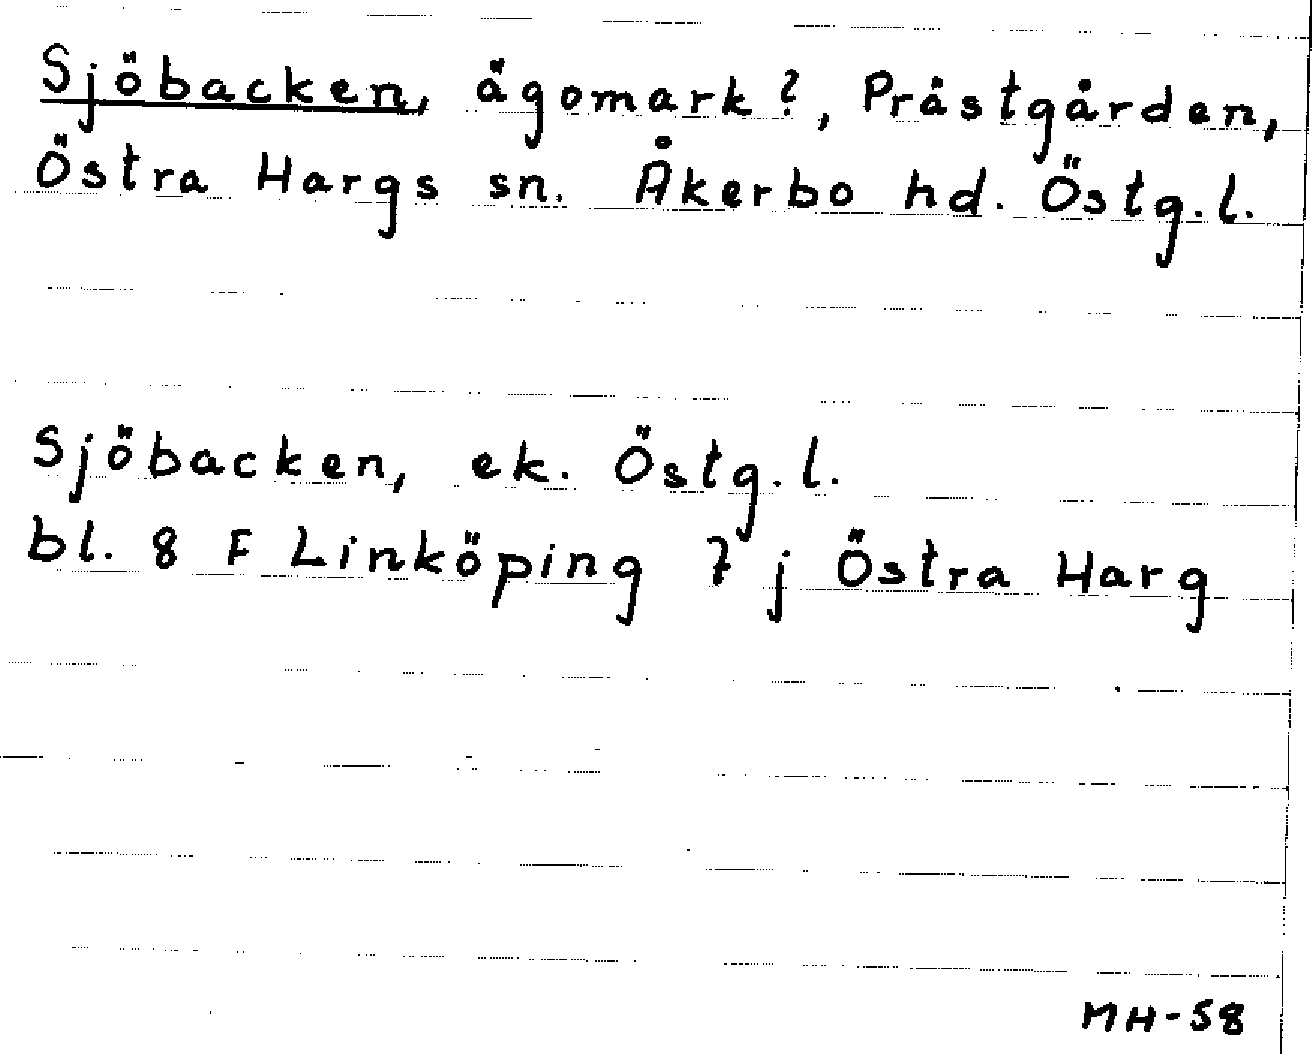 Sjöbacken, ägomark?, Prästgården,
Östra Hargs sn. Åkerbo hd. Östg.l.
Sjöbacken, ek. Östg.l.
bl. 8 F Linköping 7 j Östra Harg
MH-58